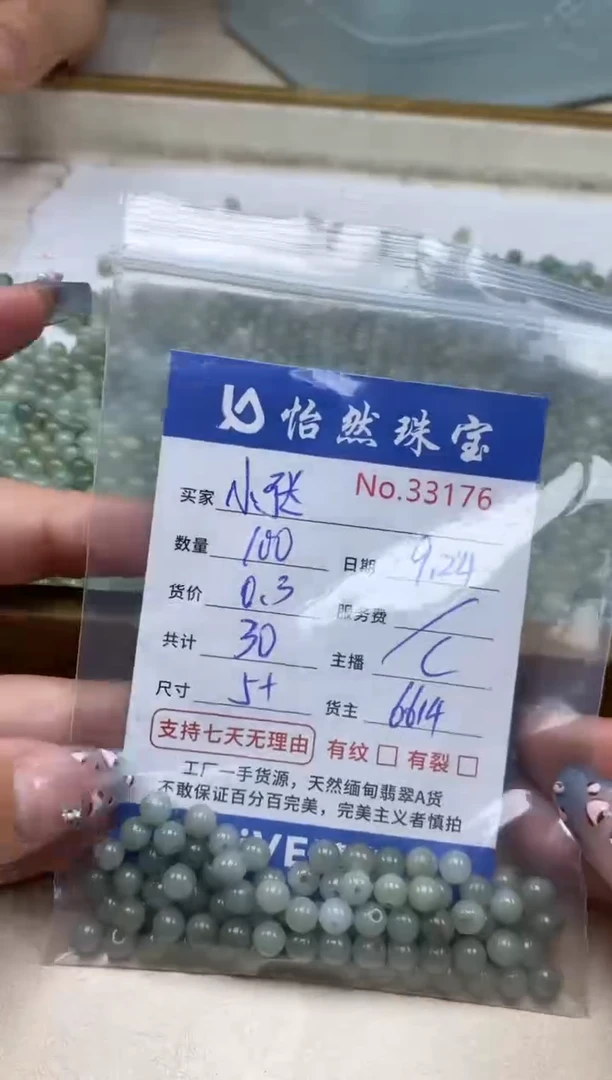 怡然珠宝
No.33176
买家 小张
数量 100 日期 9.24
货价 0.3 服务费 /
共计 30 主播 C
尺寸 5+ 货主 6614
支持七天无理由 有纹 □ 有裂 □
工厂一手货源，天然缅甸翡翠A货
不敢保证百分百完美，完美主义者慎拍